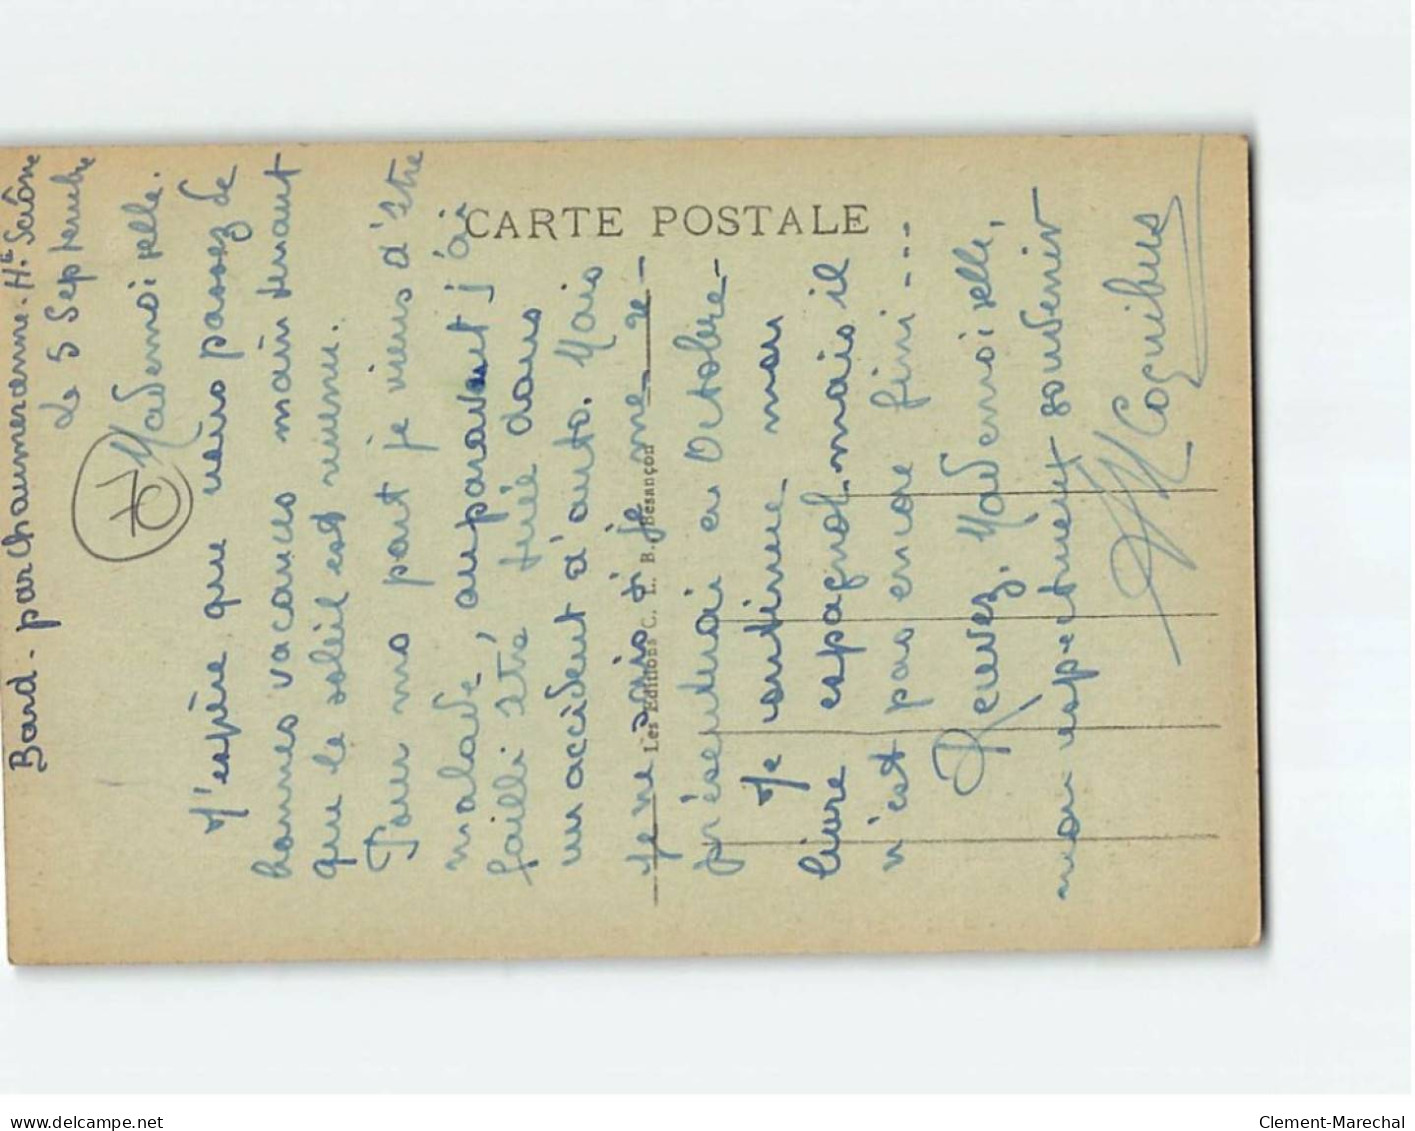 Bard - par Chaumercenne. Hte Saône
Le 5 Septembre
70
Mademoiselle.
J'espère que vous passez de
bonnes vacances maintenant
que le soleil est revenu.
Pour ma part je viens d'être
malade, auparavant j'ai
failli être tuée dans
un accident d'auto. Mais
je ne sais si je me re-
présenterai en Octobre -
Je continue mon
livre espagnol mais il
n'est pas encore fini ...
Recevez, Mademoiselle,
mon respectueux souvenir
Coquibus
CARTE POSTALE
Les Editions C. L. B. Besançon
delcampe.net
Clement-Marechal